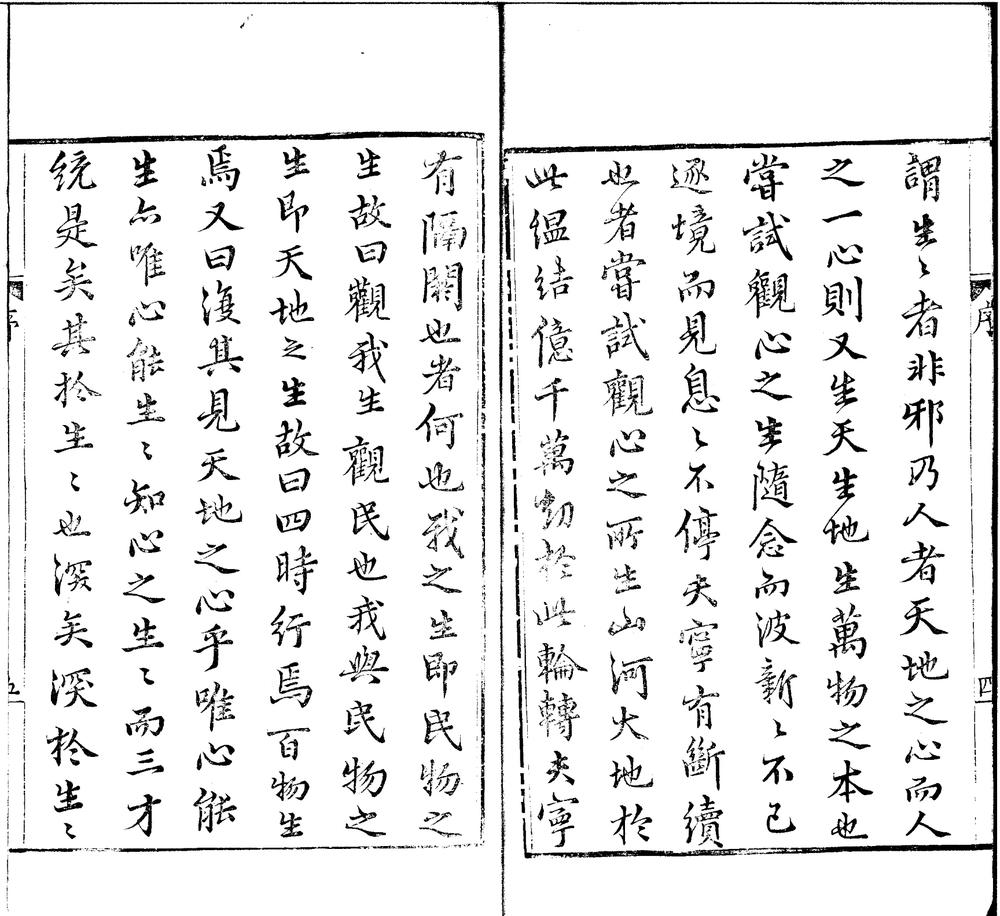 謂生〻者非邪乃人者天地之心而人
之一心則又生天生地生萬物之本也
嘗試觀心之生隨念而波新〻不已
逐境而見息〻不停夫寧有斷續
也者嘗試觀心之所生山河大地於
此緼結億千萬劫於此輪轉夫寧
有隔閡也者何也我之生即民物之
生故曰觀我生觀民也我與民物之
生即天地之生故曰四時行焉百物生
焉又曰復其見天地之心乎唯心能
生亦唯心能生〻知心之生〻而三才
統是矣其於生〻也深矣深於生〻
序
四
序
五